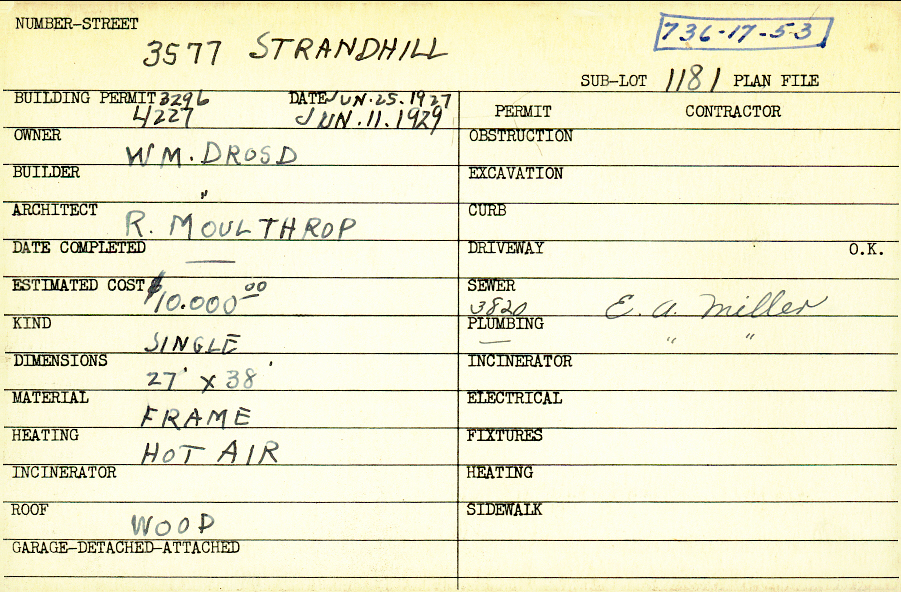 NUMBER-STREET
3577 STRANDHILL
736-17-53
SUB-LOT 1181 PLAN FILE
BUILDING PERMIT 3296 DATE JUN.25.1927
4227 JUN.11.1929
OWNER
WM. DROSD
BUILDER
"
ARCHITECT
R. MOULTHROP
DATE COMPLETED
—
ESTIMATED COST $10.000.00
KIND
SINGLE
DIMENSIONS
27' x 38'
MATERIAL
FRAME
HEATING
HOT AIR
INCINERATOR
ROOF
WOOD
GARAGE-DETACHED-ATTACHED
PERMIT CONTRACTOR
OBSTRUCTION
EXCAVATION
CURB
DRIVEWAY O.K.
SEWER
3820 E. A. Miller
PLUMBING
— " "
INCINERATOR
ELECTRICAL
FIXTURES
HEATING
SIDEWALK